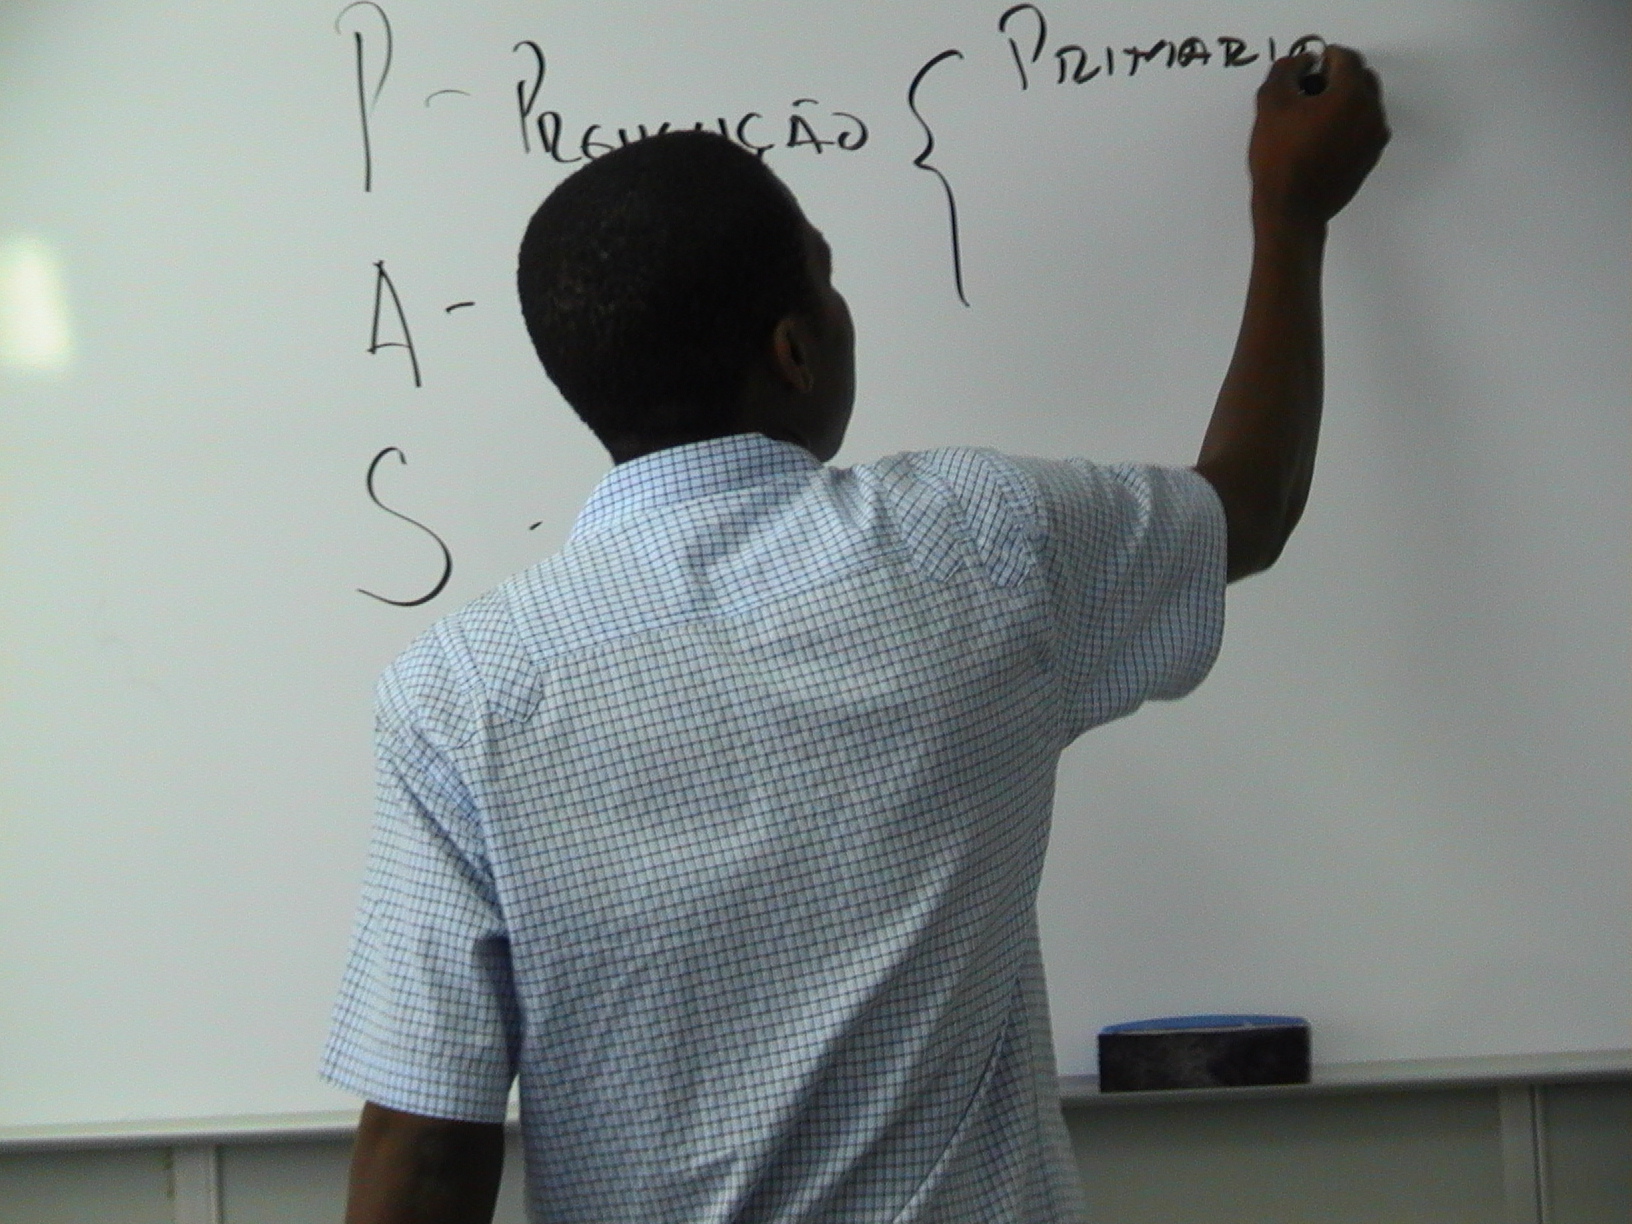 P - PREVENÇÃO { PRIMARIO
A -
S -